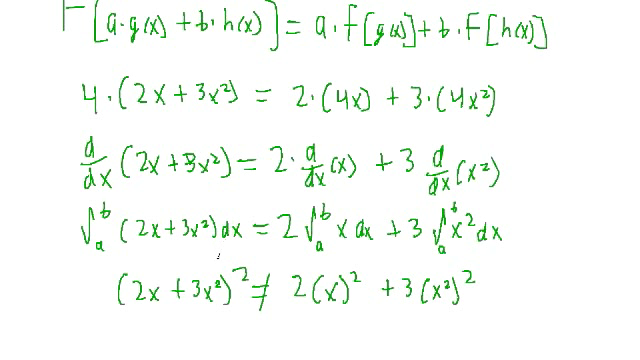 F[a·g(x) + b·h(x)] = a·f[g(x)] + b·F[h(x)]
4·(2x + 3x²) = 2·(4x) + 3·(4x²)
d/dx (2x + 3x²) = 2·d/dx (x) + 3 d/dx (x²)
∫ₐᵇ (2x + 3x²) dx = 2∫ₐᵇ x dx + 3∫ₐᵇ x² dx
(2x + 3x²)² ≠ 2(x)² + 3(x²)²